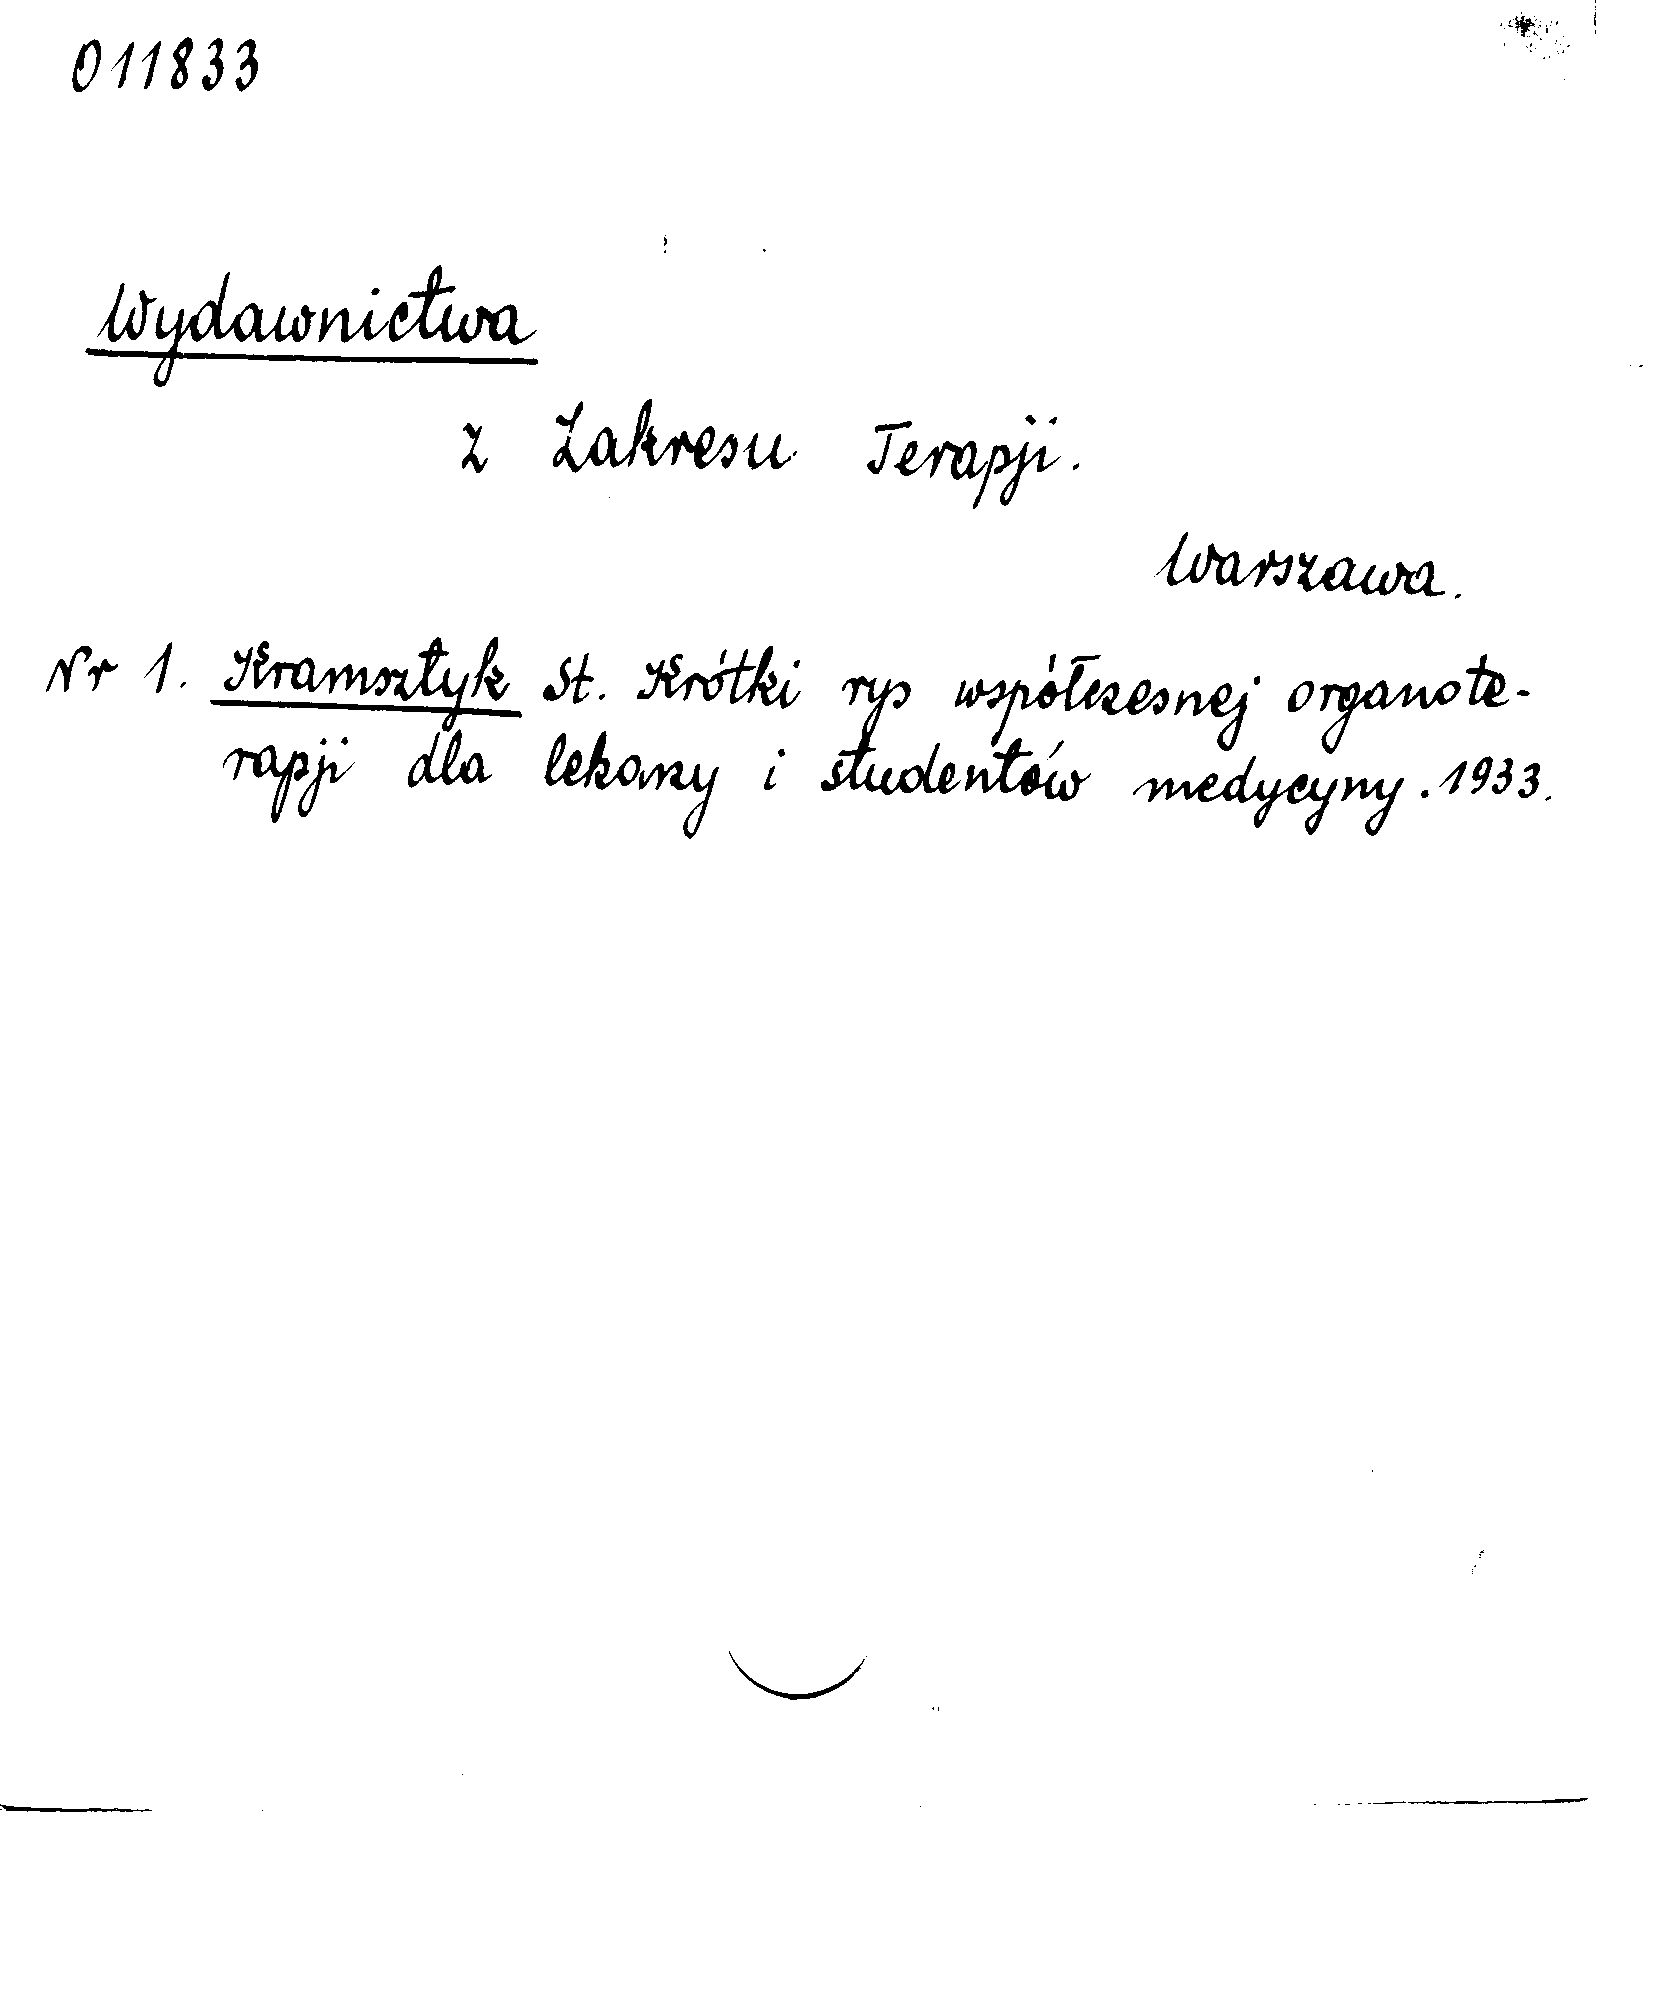 011833
Wydawnictwa
z Zakresu Terapji.
Warszawa.
Nr 1. Kramsztyk St. Krótki rys współczesnej organote-
rapji dla lekarzy i studentów medycyny. 1933.